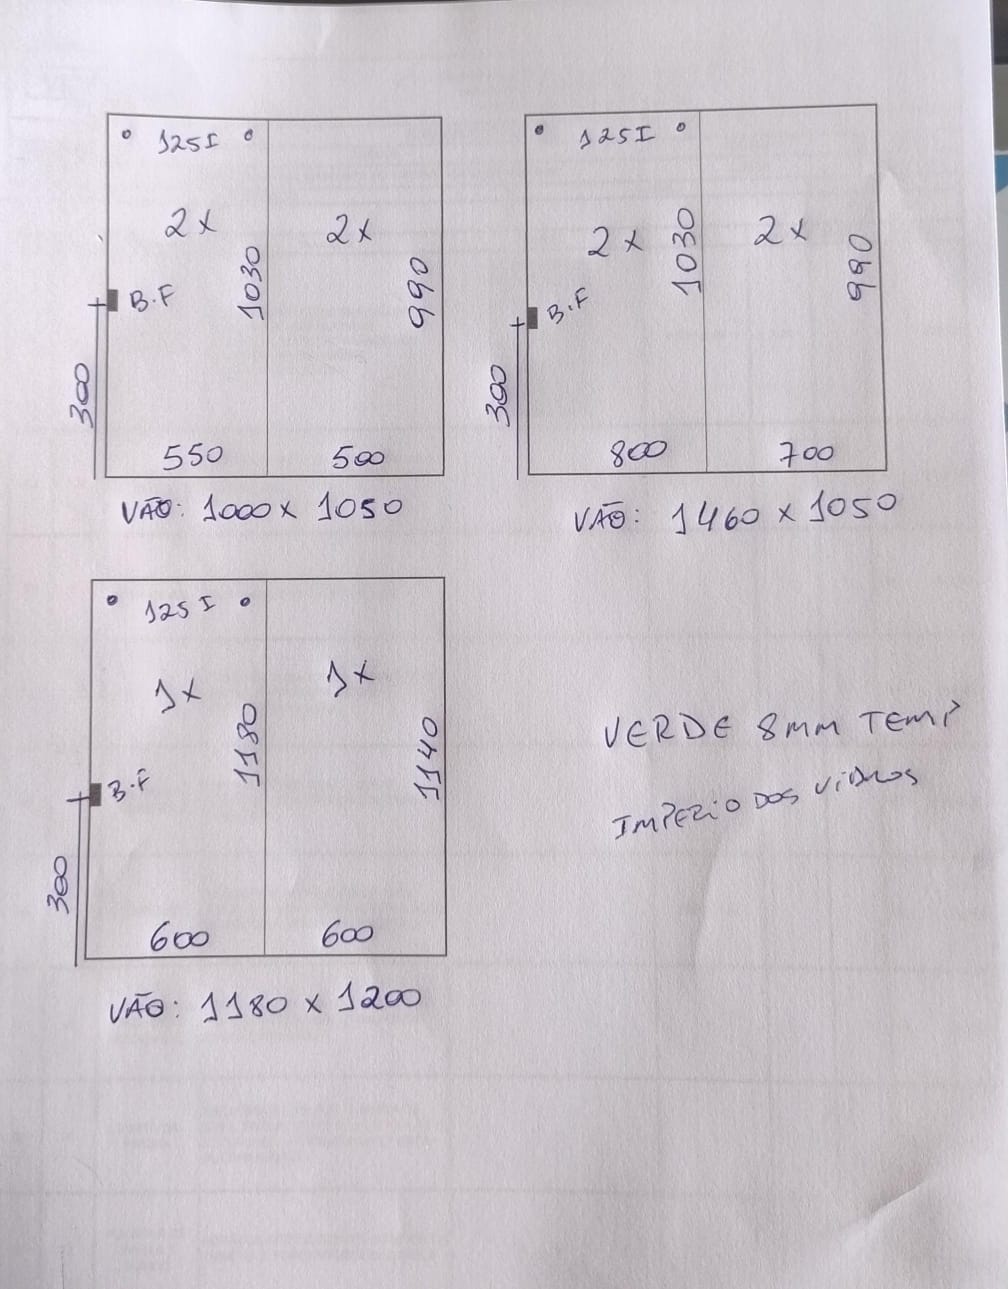 125I
2x
2x
1030
990
B.F
300
550
500
VÃO: 1000 x 1050
125I
2x
2x
1030
990
B.F
300
800
700
VÃO: 1460 x 1050
125I
1x
1x
1180
1140
B.F
300
600
600
VÃO: 1180 x 1200
VERDE 8mm TEMP
IMPERIO DOS VIDROS